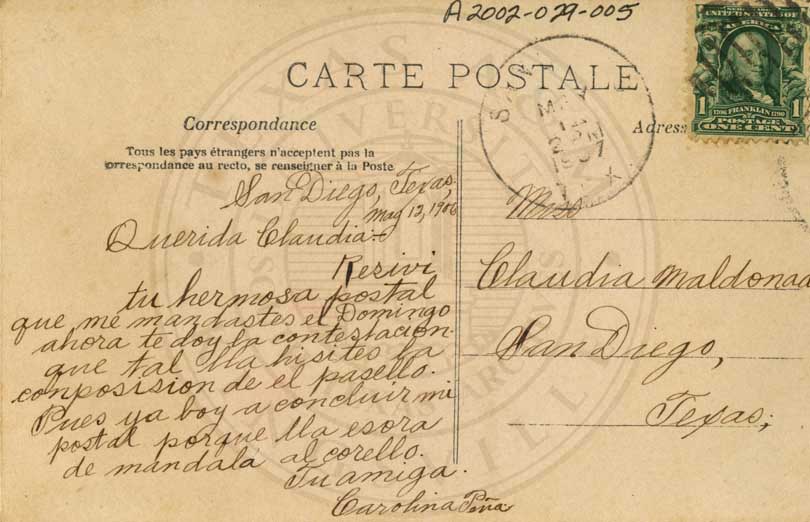 A2002-029-005
CARTE POSTALE
Correspondance
Adress
Tous les pays étrangers n'acceptent pas la
correspondance au recto, se renseigner à la Poste
San Diego, Texas,
May 12, 1906
Querida Claudia-
Resivi
tu hermosa postal
que me mandastes el Domingo
ahora te doy la contestacion.
que tal lla hisites la
conposision de el pasello.
Pues ya boy a concluir mi
postal porque lla esora
de mandala al corello.
Tu amiga.
Carolina Peña
Miss
Claudia Maldonad
San Diego,
Texas;
1 1706 FRANKLIN 1790 1
POSTAGE
ONE CENT